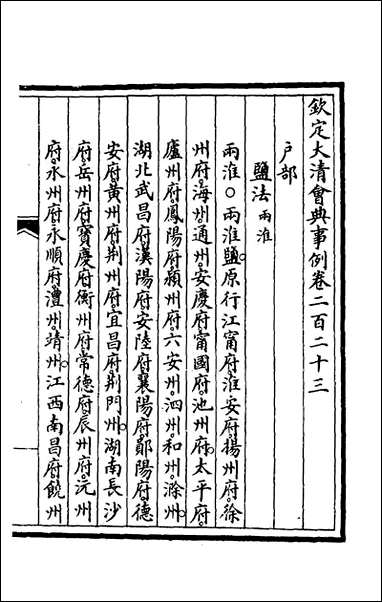 欽定大清會典事例卷二百二十三
户部
鹽法兩淮
兩淮○兩淮鹽原行江甯府淮安府揚州府徐
州府海州通州安慶府甯國府池州府太平府
廬州府鳳陽府潁州府六安州泗州和州滁州
湖北武昌府漢陽府安陸府襄陽府鄖陽府德
安府黃州府荆州府宜昌府荆門州湖南長沙
府岳州府寶慶府衡州府常德府辰州府沅州
府永州府永順府澧州靖州江西南昌府饒州